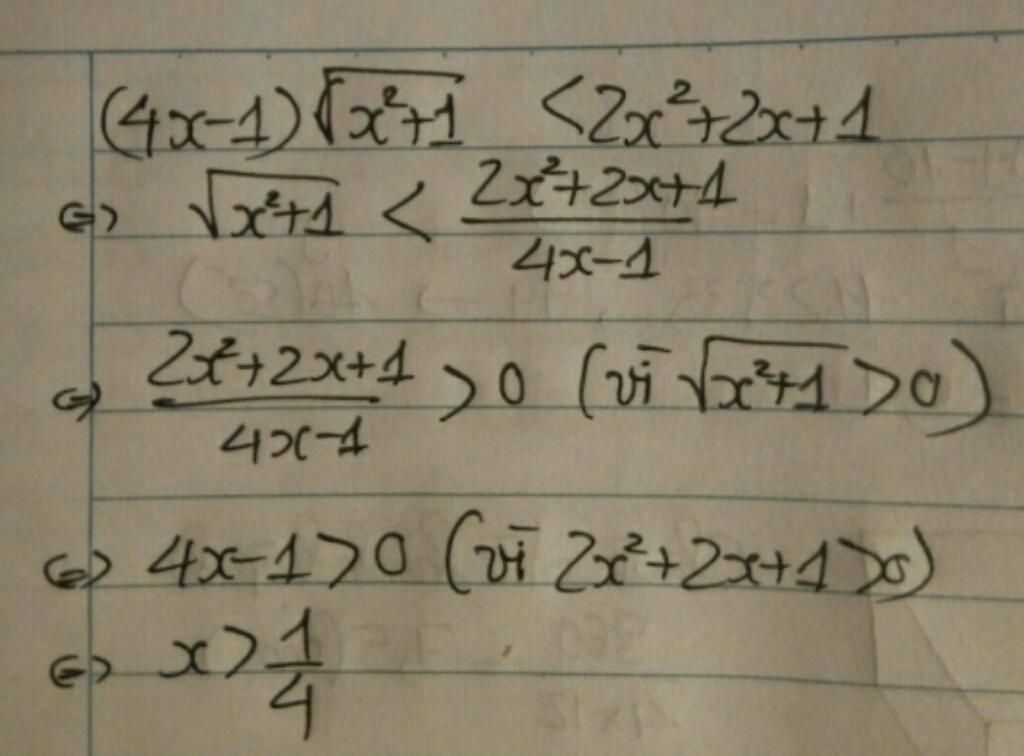 (4x-1)√(x²+1) < 2x²+2x+1
⇔ √(x²+1) < (2x²+2x+1)/(4x-1)
⇔ (2x²+2x+1)/(4x-1) > 0 (vì √(x²+1) > 0)
⇔ 4x-1 > 0 (vì 2x²+2x+1 > 0)
⇔ x > 1/4